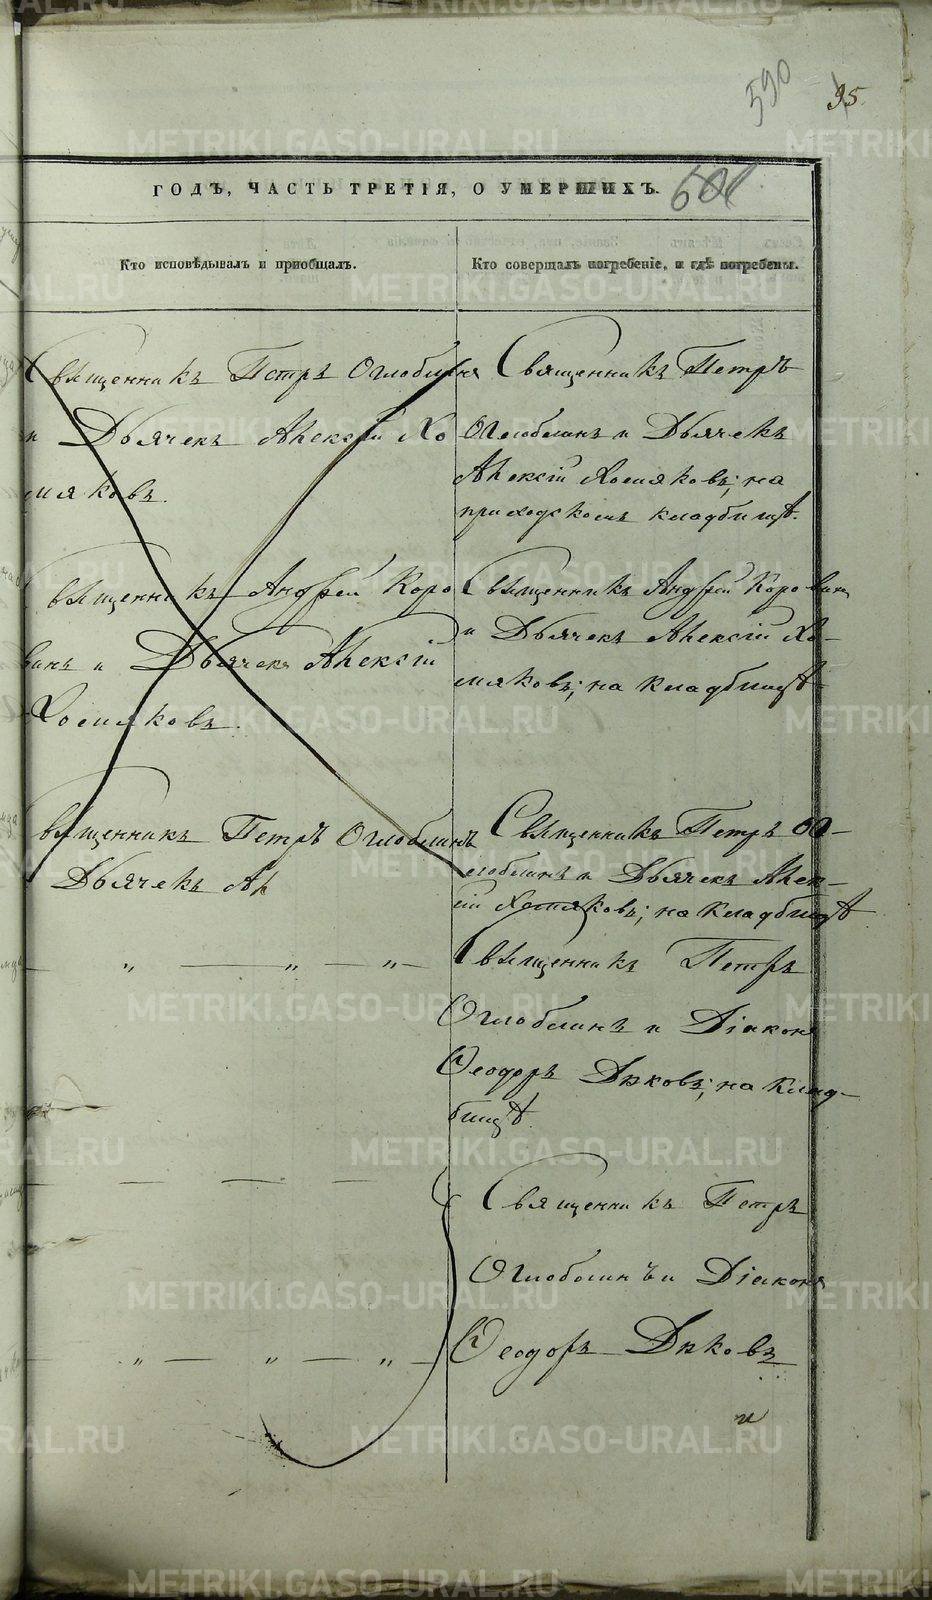 590 95
ГОДЪ, ЧАСТЬ ТРЕТІЯ, О УМЕРШИХЪ.
Кто исповѣдывалъ и пріобщалъ.
Кто совершалъ погребеніе, и гдѣ погребены.
Священникъ Петръ Оглоблинъ
и Дьячекъ Алексій Хо
мяковъ.
Священникъ Петръ
Оглоблинъ и Дьячекъ
Алексій Хомяковъ; на
приходскомъ кладбищѣ.
Священникъ Андрей Коро
винъ и Дьячекъ Алексій
Хомяковъ.
Священникъ Андрей Коровинъ
и Дьячекъ Алексій Хо-
мяковъ; на кладбищѣ
Священникъ Петръ Оглоблинъ
Дьячекъ Ал
Священникъ Петръ Ог-
лоблинъ и Дьячекъ Алек-
сій Хомяковъ; на кладбищѣ
Священникъ Петръ
Оглоблинъ и Діаконъ
Ѳеодоръ Дьковъ; на клад-
бищѣ.
Священникъ Петръ
Оглоблинъ и Діаконъ
Ѳеодоръ Дьковъ
и
METRIKI.GASO-URAL.RU